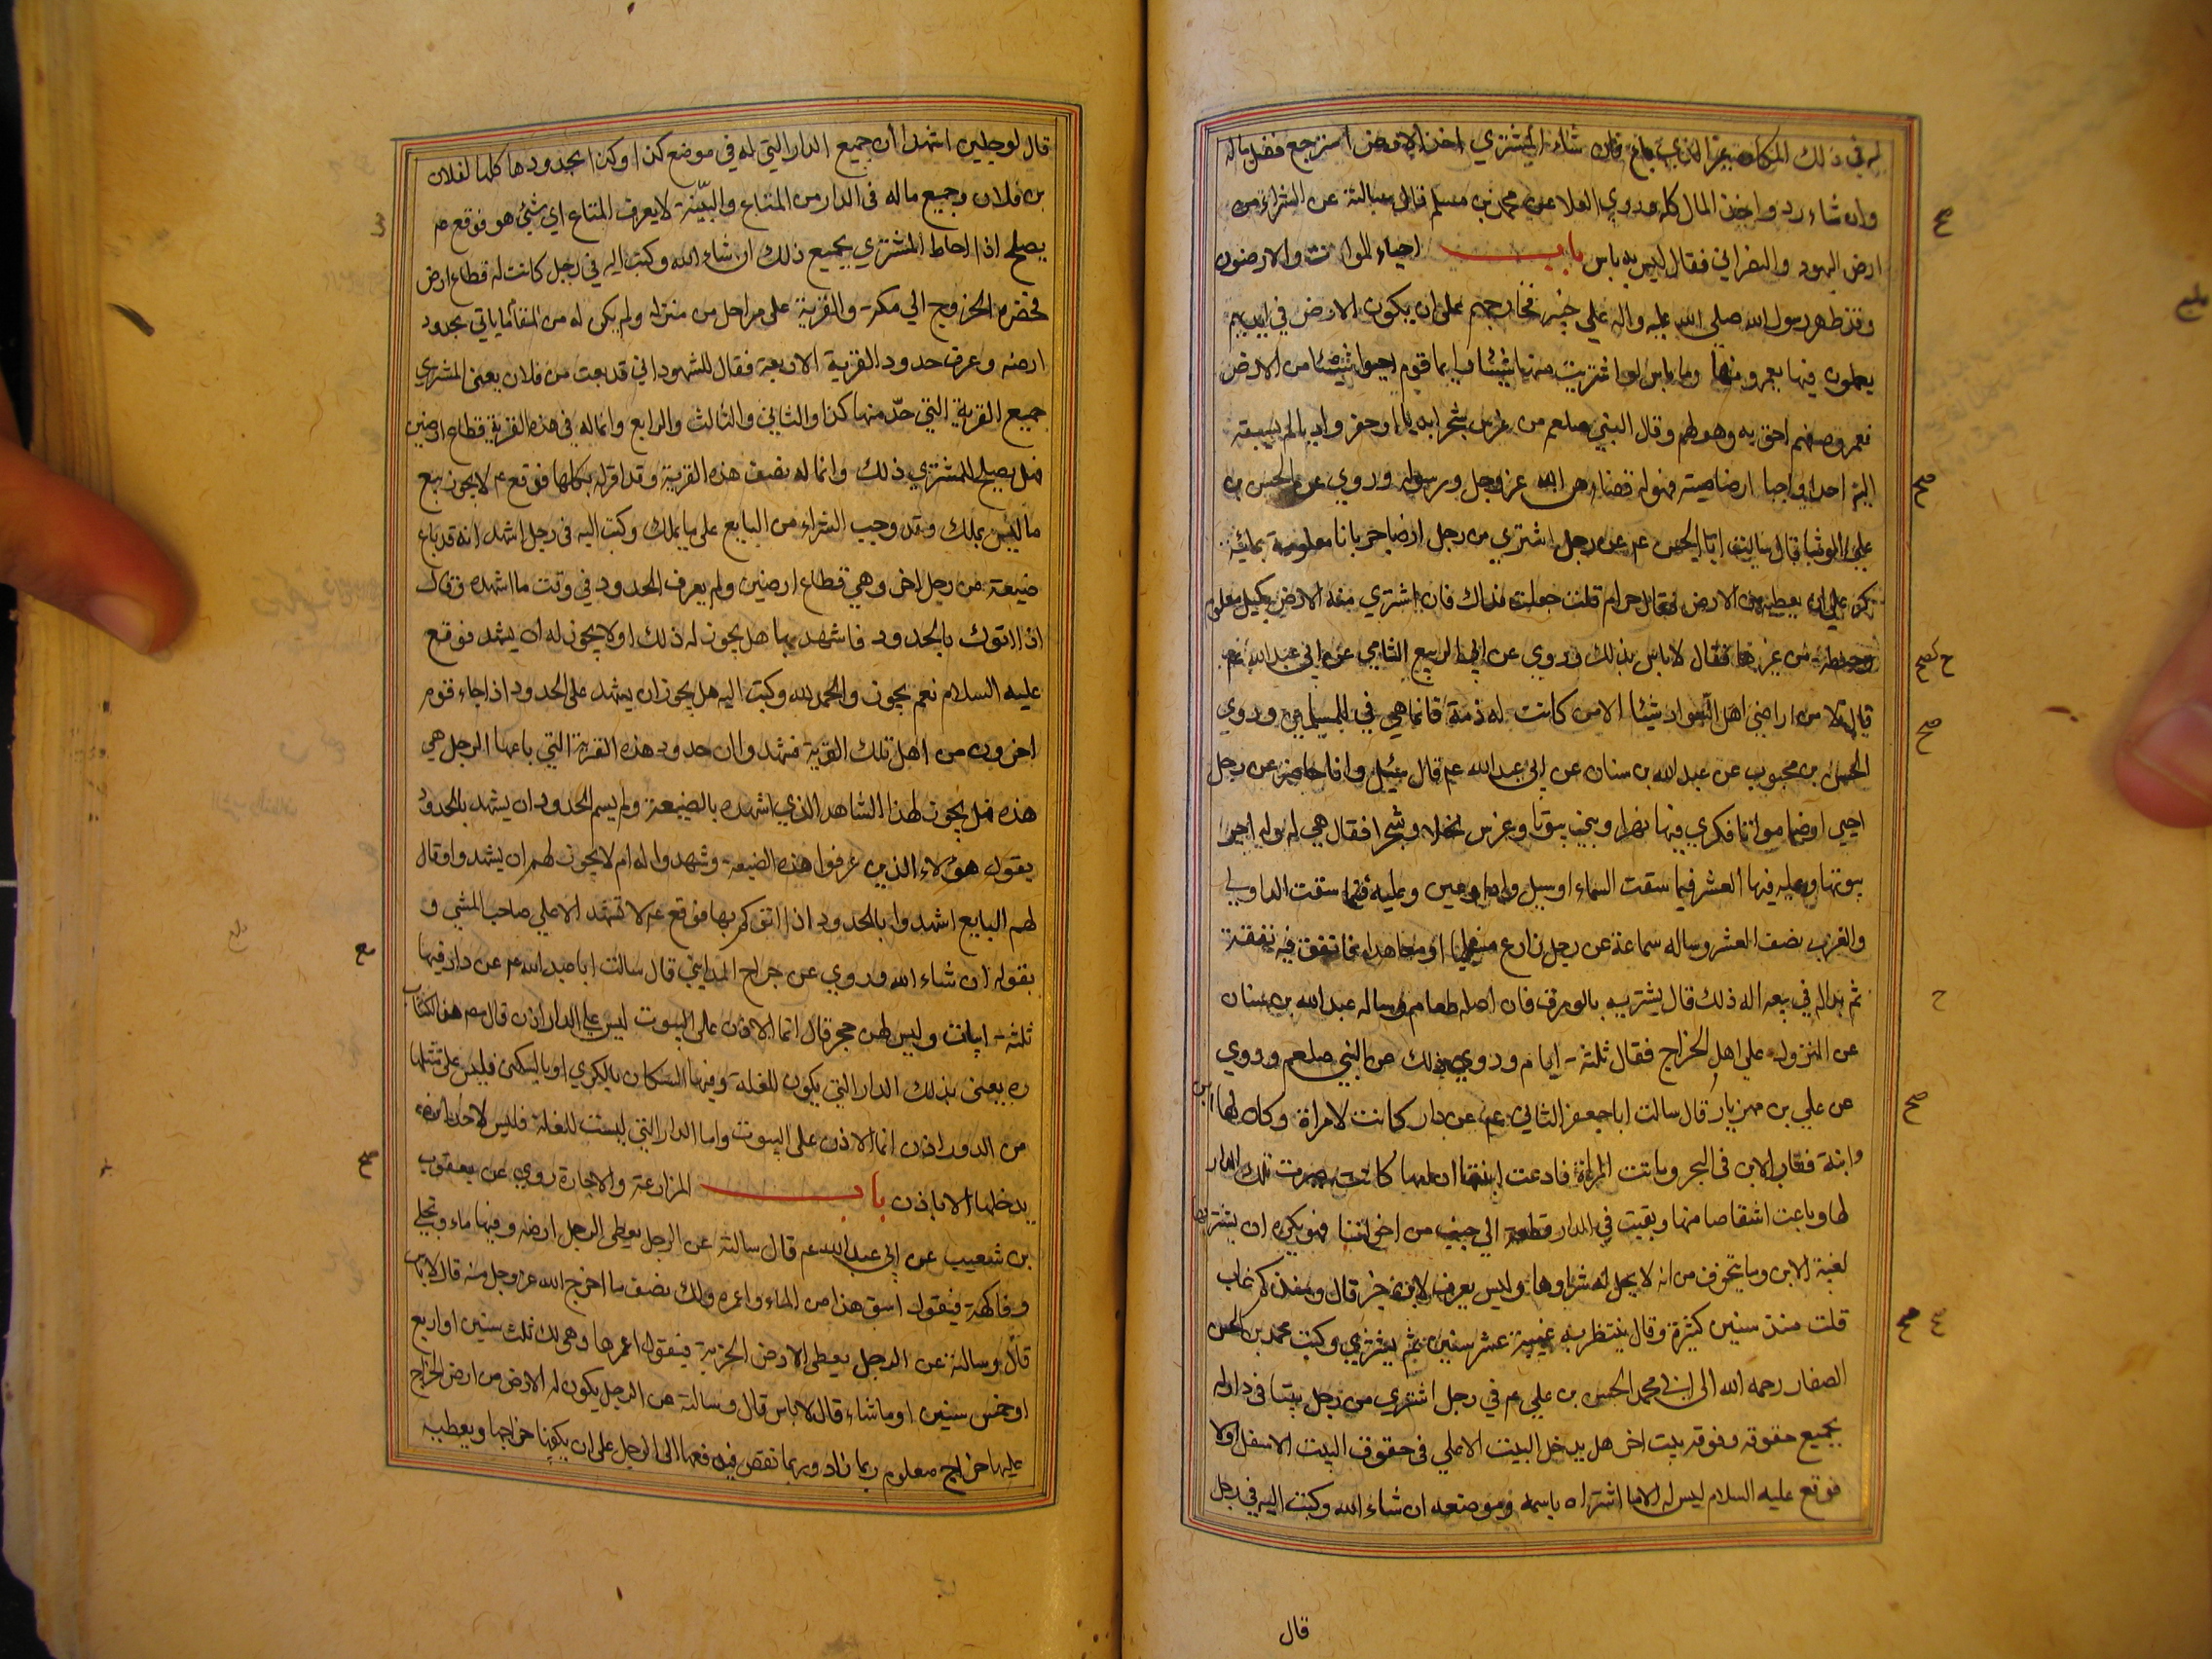 له في ذلك المكان غير الذي باع فان شاء المشتري اخذ الارض استرجع فضل ماله
وان شاء رد واخذ المال كله وروي العلا عن محمد بن مسلم قال سالته عن الشراء من
ارض اليهود والنصراني فقال ليس به باس باب احياء الموات والارضون
وقد ظهر رسول الله صلى الله عليه واله على خيبر فخارجهم على ان يكون الارض في ايديهم
يعملون فيها يعمرونها وما باس لو اشتريت منها شيئا وايما قوم احيوا شيئا من الارض
فعمروه فهم احق به وهو لهم وقال النبي صلعم من غرس شجرا بديا او حفر واديا لم يسبقه
اليه احد او احيا ارضا ميتة فهو له قضاء من الله عز وجل ورسوله وروي عن الحسن بن
علي الوشا قال سالت ابا الحسن عم عن رجل اشترى من رجل ارضا جربانا معلومة بمائة
كر على ان يعطيه من الارض فقال حرام قلت جعلت فداك فان اشتري منه الارض بكيل معلوم
وحنطة من غيرها فقال لا باس بذلك وروي عن ابي الربيع الشامي عن ابي عبد الله عم
قال لا من اراضي اهل السواد شيئا الا من كانت له ذمة فانما هي فيء للمسلمين وروي
الحسن بن محبوب عن عبد الله بن سنان عن ابي عبد الله عم قال سئل وانا حاضر عن رجل
احيى ارضا مواتا فكري فيها نهرا وبنى بيوتا وغرس نخلا وشجرا فقال هي له وله اجر
بيوتها وعليه فيها العشر فيما سقت السماء او سيل واد او عين وعليه فيما سقت الدوالي
والغرب نصف العشر وساله سماعة عن رجل زارع مسلما او معاهدا فانفق فيه نفقة
ثم بدا له في بيعه اله ذلك قال يشتريه بالورق فان اصله طعام وساله عبد الله بن سنان
عن النزول على اهل الخراج فقال ثلثة ايام وروي ذلك عن النبي صلعم وروي
عن علي بن مهزيار قال سالت ابا جعفر الثاني عم عن دار كانت لامراة وكان لها ابن
وابنة فغاب الابن في البحر وماتت المراة فادعت ابنتها ان امها كانت صيرت تلك الدار
لها وباعت اشقاصا منها وبقيت في الدار قطعة الى جنب من اخواننا فهو يكره ان يشتريها
لغيبة الابن وما يتخوف من انه لا يحل له شراوها وليس يعرف للابن خبر قال ومنذ كم غاب
قلت منذ سنين كثيرة وقال ينتظر به غيبة عشر سنين ثم يشتري وكتب محمد بن الحسن
الصفار رحمه الله الى ابي محمد الحسن بن علي عم في رجل اشترى من رجل بيتا في داره
بجميع حقوقه وفوقه بيت اخر هل يدخل البيت الاعلى في حقوق البيت الاسفل او لا
فوقع عليه السلام ليس له الا ما اشتراه باسمه وموضعه ان شاء الله وكتب اليه في رجل
قال
صح
صح
صح
صح
صح
قال لرجلين اشهدا أن جميع الدار التي له في موضع كذا وكذا بحدودها كلها لفلان
بن فلان وجميع ماله في الدار من المتاع والبيّنة لا يعرف المتاع اي شئ هو فوقع عم
يصلح اذا احاط المشتري بجميع ذلك ان شاء الله وكتب اليه في رجل كانت له قطاع ارض
فحضره الخروج الى مكة والقرية على مراحل من منزله ولم يكن له من المقام ما ياتي بحدود
ارضه وعرف حدود القرية الاربعة فقال للشهود اني قد بعت من فلان يعني المشتري
جميع القرية التي حدّ منها كذا والثاني والثالث والرابع وانما له في هذه القرية قطاع ارضين
فهل يصلح للمشتري ذلك وانما له نصف هذه القرية وقد اقر له بكلها فوقع عم لا يجوز بيع
ما ليس بملك وقد وجب الشراء من البايع على ما يملك وكتب اليه في رجل اشهد انه قد باع
ضيعة من رجل اخر وهي قطاع ارضين ولم يعرف الحدود في وقت ما اشهده وقال
اذا اتوك بالحدود فاشهد بها هل يجوز له ذلك او لا يجوز له ان يشهد فوقع
عليه السلام نعم يجوز والحمد لله وكتب اليه هل يجوز ان يشهد على الحدود اذا جاء قوم
اخرون من اهل تلك القرية فشهدوا ان حدود هذه القرية التي باعها الرجل هي
هذه فهل يجوز لهذا الشاهد الذي اشهده بالضيعة ولم يسم الحدود ان يشهد بالحدود
بقول هؤلاء الذين عرفوا هذه الضيعة وشهدوا له ام لا يجوز لهم ان يشهدوا وقال
لهم البايع اشهدوا بالحدود اذا اتوكم بها فوقع عم لا تشهد الا على صاحب الشي و
بقوله ان شاء الله وروي عن جراح المدايني قال سالت ابا عبد الله عم عن دار فيها
ثلثة ابيات وليس لهن حجر قال انما الاذن على البيوت ليس على الدار اذن قال مص هذا الكتاب
ره يعنى بذلك الدار التي يكون للغلة وفيها السكان بالكرى او بالسكنى فليس على مثلها
من الدور اذن انما الاذن على البيوت واما الدار التي ليست للغلة فليس لاحد ان
يدخلها الا باذن باب المزارعة والاجارة روي عن يعقوب
بن شعيب عن ابي عبد الله عم قال سالته عن الرجل يعطى الرجل ارضه وفيها ماء ونخل
وفاكهة فيقول اسق هذا من الماء واعمره ولك نصف ما اخرج الله عز وجل منه قال لا باس
قال وسالته عن الرجل يعطى الارض الخربة فيقول اعمرها وهى لك ثلث سنين او اربع
او خمس سنين او ما شاء قال لا باس قال وسالته عن الرجل يكون له الارض من ارض الخراج
عليها خراج معلوم ربما زاد وربما نقص فيدفعها الى الرجل على ان يكفيها خراجها ويعطيه
صح